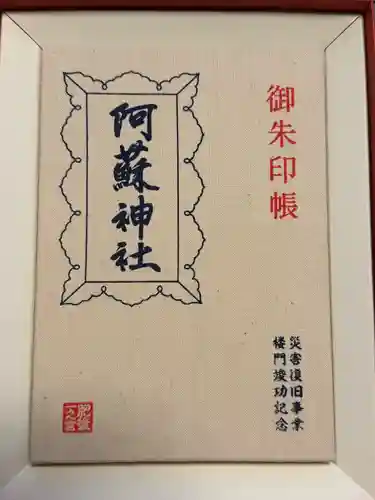 御朱印帳
阿蘇神社
災害復旧事業
楼門竣功記念
肥後
一之宮